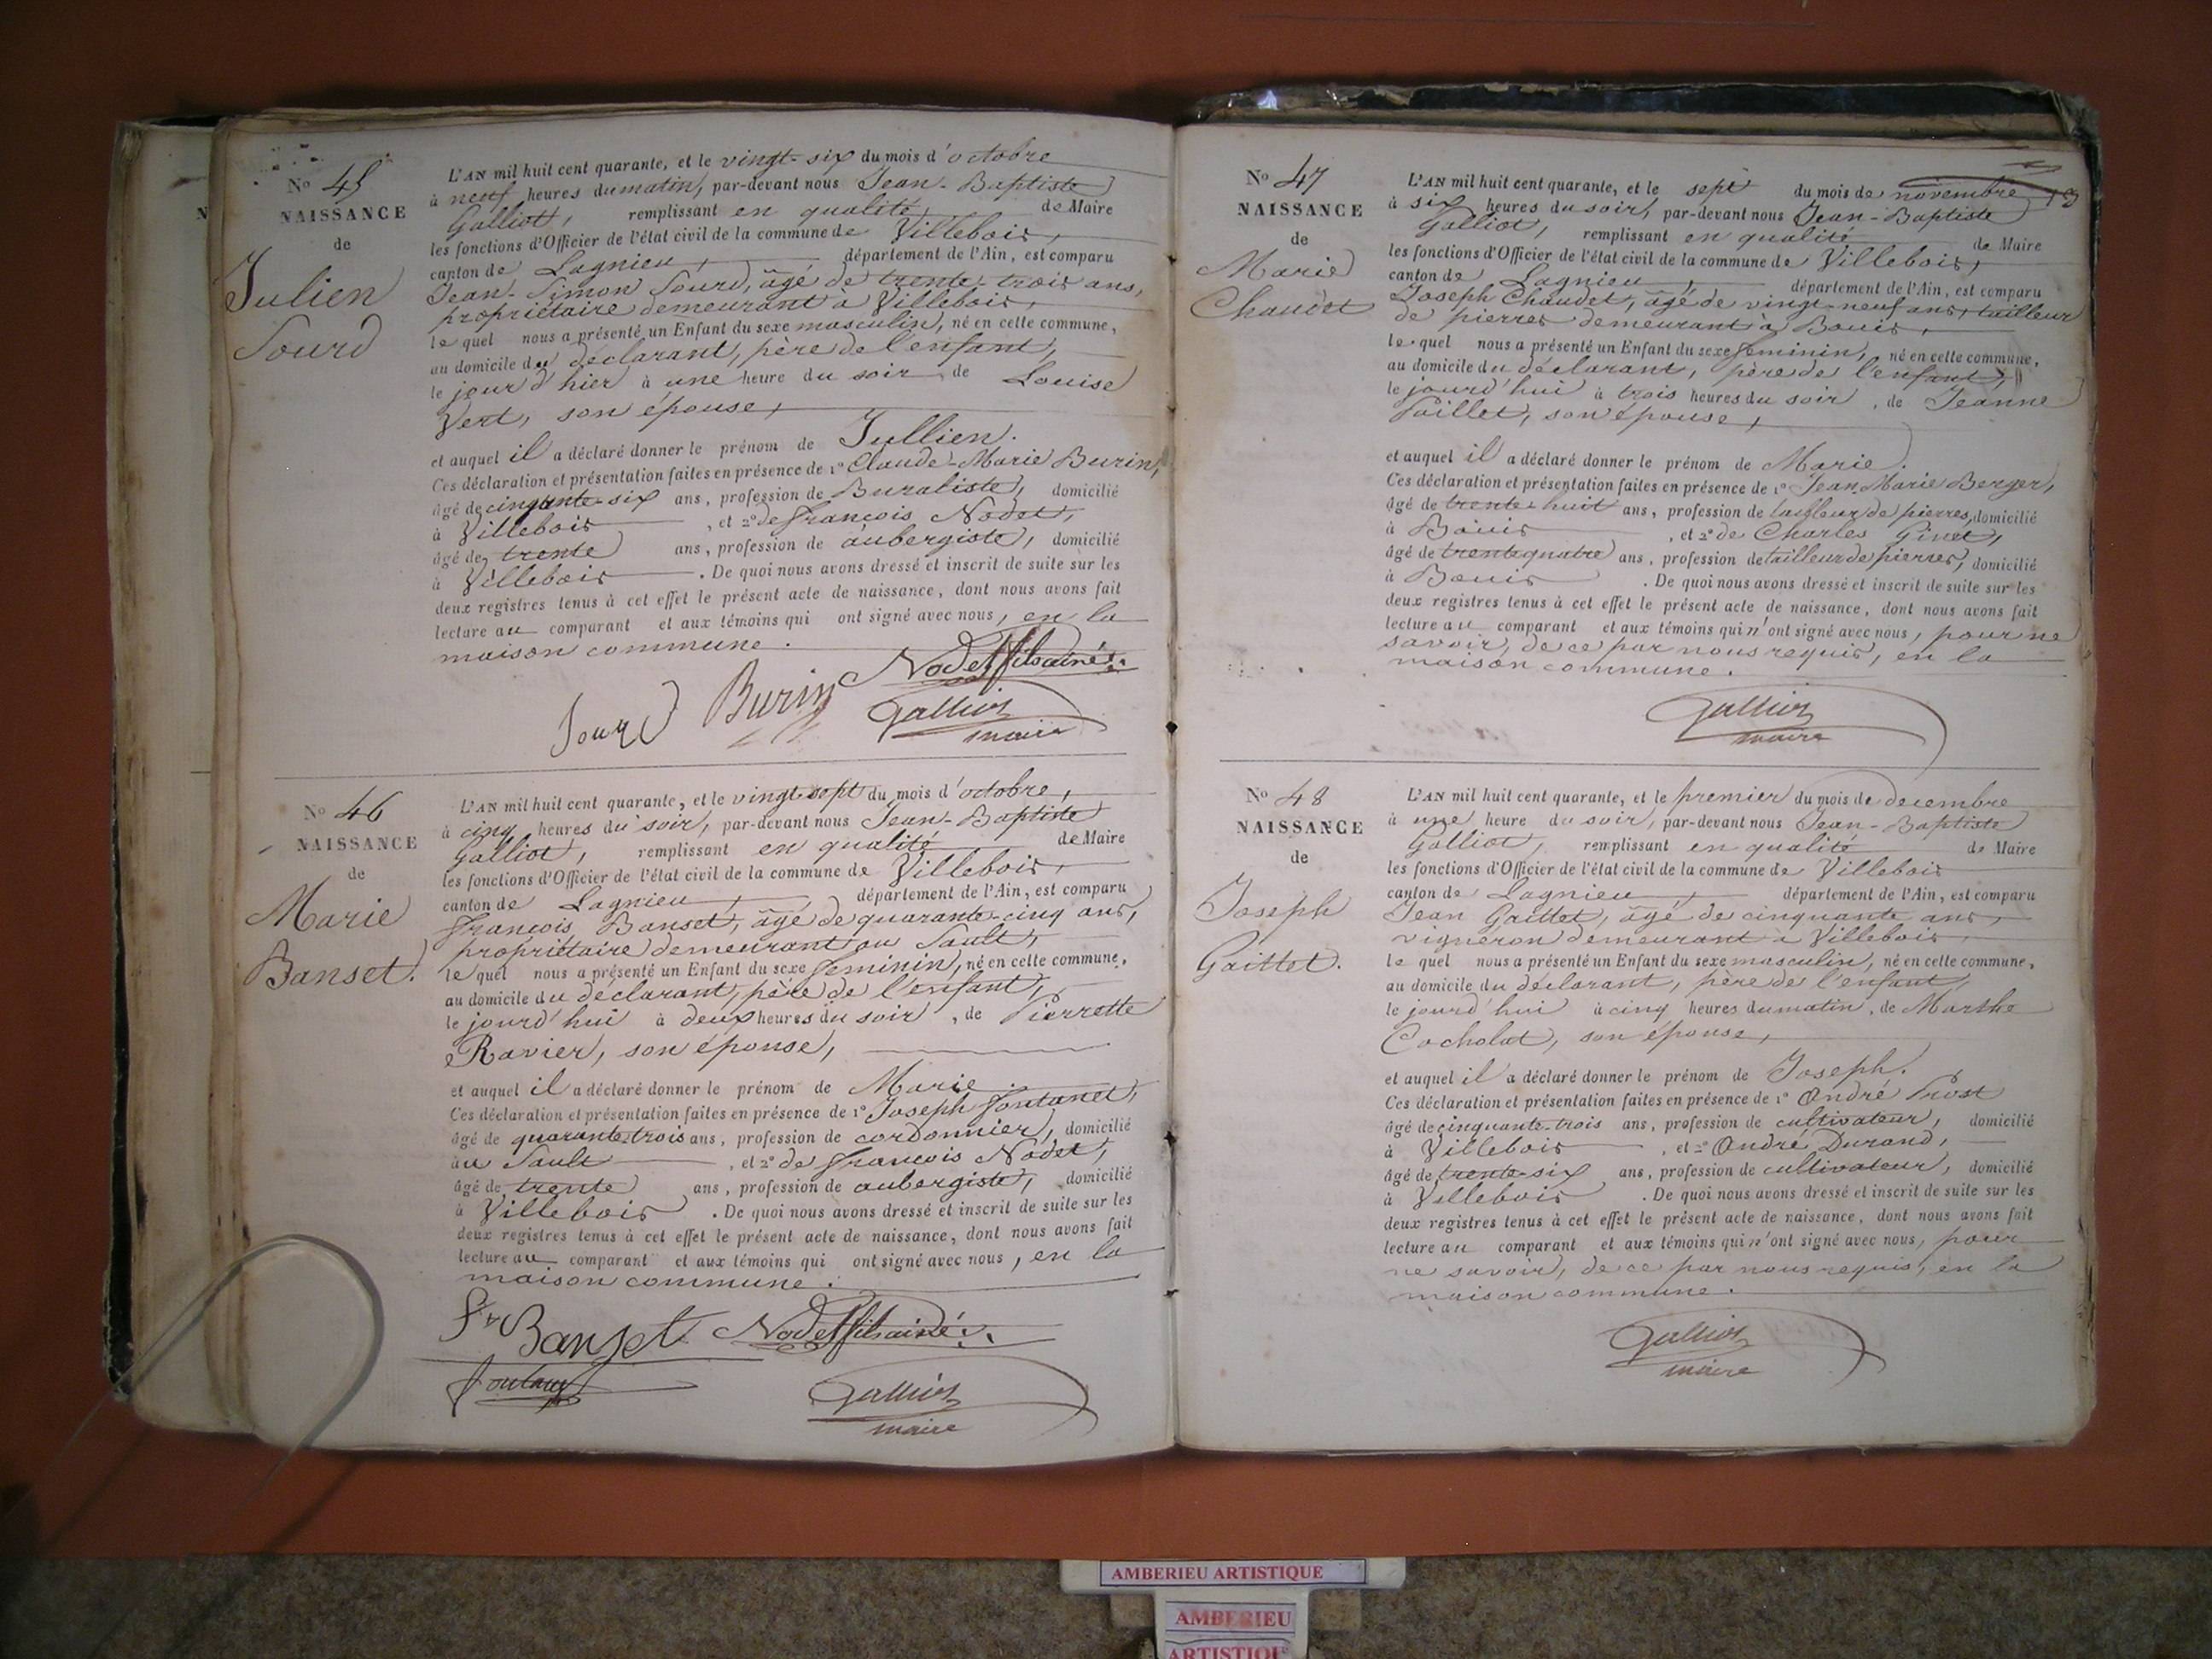 N
No 45
NAISSANCE
de
Julien
Sourd
L'AN mil huit cent quarante, et le vingt-six du mois d'octobre
à neuf heures du matin, par-devant nous Jean-Baptiste
Galliot, remplissant en qualité de Maire
les fonctions d'Officier de l'état civil de la commune de Villebois,
canton de Lagnieu, département de l'Ain, est comparu
Jean-Simon Sourd, âgé de trente-trois ans,
propriétaire demeurant à Villebois,
le quel nous a présenté un Enfant du sexe masculin, né en cette commune,
au domicile du déclarant, père de l'enfant,
le jour d'hier à une heure du soir de Louise
Vert, son épouse,
et auquel il a déclaré donner le prénom de Jullien.
Ces déclaration et présentation faites en présence de 1o Claude-Marie Burin,
âgé de cinquante-six ans, profession de Buraliste, domicilié
à Villebois, et 2o de François Nodet,
âgé de trente ans, profession de aubergiste, domicilié
à Villebois. De quoi nous avons dressé et inscrit de suite sur les
deux registres tenus à cet effet le présent acte de naissance, dont nous avons fait
lecture au comparant et aux témoins qui ont signé avec nous, en la
maison commune.
Nodet fils ainé
Sourd Burin Galliot
maire
No 46
NAISSANCE
de
Marie
Banset.
L'AN mil huit cent quarante, et le vingt-sept du mois d'octobre,
à cinq heures du soir, par-devant nous Jean-Baptiste
Galliot, remplissant en qualité de Maire
les fonctions d'Officier de l'état civil de la commune de Villebois,
canton de Lagnieu, département de l'Ain, est comparu
François Banset, âgé de quarante-cinq ans,
propriétaire demeurant au Sault,
le quel nous a présenté un Enfant du sexe feminin, né en cette commune,
au domicile du déclarant, père de l'enfant,
le jourd'hui à deux heures du soir, de Pierrette
Ravier, son épouse,
et auquel il a déclaré donner le prénom de Marie.
Ces déclaration et présentation faites en présence de 1o Joseph Fontanet,
âgé de quarante-trois ans, profession de cordonnier, domicilié
au Sault, et 2o de François Nodet,
âgé de trente ans, profession de aubergiste, domicilié
à Villebois. De quoi nous avons dressé et inscrit de suite sur les
deux registres tenus à cet effet le présent acte de naissance, dont nous avons fait
lecture au comparant et aux témoins qui ont signé avec nous, en la
maison commune.
Fr Banset Nodet fils ainé
Galliot
maire
No 47
NAISSANCE
de
Marie
Chaudet
L'AN mil huit cent quarante, et le sept du mois de novembre
à six heures du soir, par-devant nous Jean-Baptiste
Galliot, remplissant en qualité de Maire
les fonctions d'Officier de l'état civil de la commune de Villebois,
canton de Lagnieu, département de l'Ain, est comparu
Joseph Chaudet, âgé de vingt-neuf ans, tailleur
de pierres demeurant à Bouis,
le quel nous a présenté un Enfant du sexe feminin, né en cette commune,
au domicile du déclarant, père de l'enfant,
le jourd'hui à trois heures du soir, de Jeanne
Paillet, son épouse,
et auquel il a déclaré donner le prénom de Marie.
Ces déclaration et présentation faites en présence de 1o Jean-Marie Berger,
âgé de trente-huit ans, profession de tailleur de pierres, domicilié
à Bouis, et 2o de Charles Ginet,
âgé de trente quatre ans, profession de tailleur de pierres, domicilié
à Bouis. De quoi nous avons dressé et inscrit de suite sur les
deux registres tenus à cet effet le présent acte de naissance, dont nous avons fait
lecture au comparant et aux témoins qui n'ont signé avec nous, pour ne
savoir, de ce par nous requis, en la
maison commune.
Galliot
maire
No 48
NAISSANCE
de
Joseph
Gaittet.
L'AN mil huit cent quarante, et le premier du mois de decembre
à une heure du soir, par-devant nous Jean-Baptiste
Galliot, remplissant en qualité de Maire
les fonctions d'Officier de l'état civil de la commune de Villebois
canton de Lagnieu, département de l'Ain, est comparu
Jean Gaittet, âgé de cinquante ans,
vigneron demeurant à Villebois
le quel nous a présenté un Enfant du sexe masculin, né en cette commune,
au domicile du déclarant, père de l'enfant,
le jourd'hui à cinq heures du matin, de Marthe
Cocholat, son épouse,
et auquel il a déclaré donner le prénom de Joseph.
Ces déclaration et présentation faites en présence de 1o André Prost
âgé de cinquante-trois ans, profession de cultivateur, domicilié
à Villebois, et 2o André Durand,
âgé de trente-six ans, profession de cultivateur, domicilié
à Villebois. De quoi nous avons dressé et inscrit de suite sur les
deux registres tenus à cet effet le présent acte de naissance, dont nous avons fait
lecture au comparant et aux témoins qui n'ont signé avec nous, pour
ne savoir, de ce par nous requis, en la
maison commune.
Galliot
maire
AMBERIEU ARTISTIQUE
AMBERIEU
ARTISTIQUE